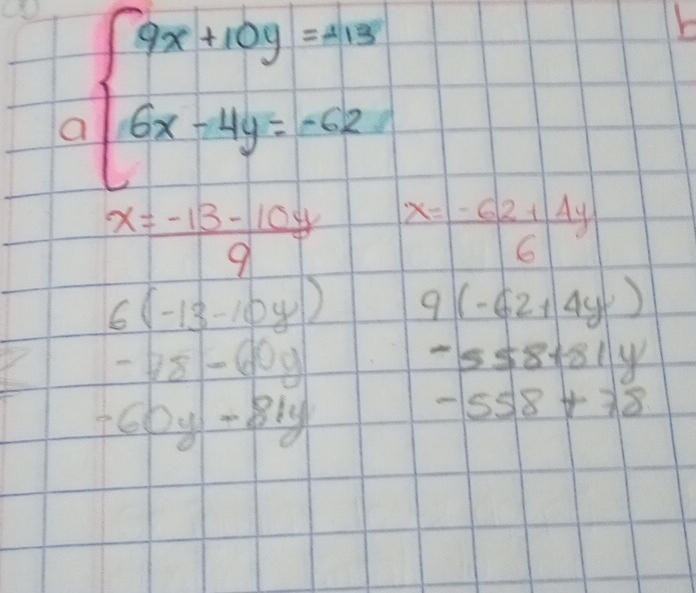 9x + 10y = -13
a
6x - 4y = -62
x = -13 - 10y / 9 x = -62 + 4y / 6
6(-13-10y) 9(-62+4y)
-78 - 60y -558+81y
-60y - 81y -558 + 78